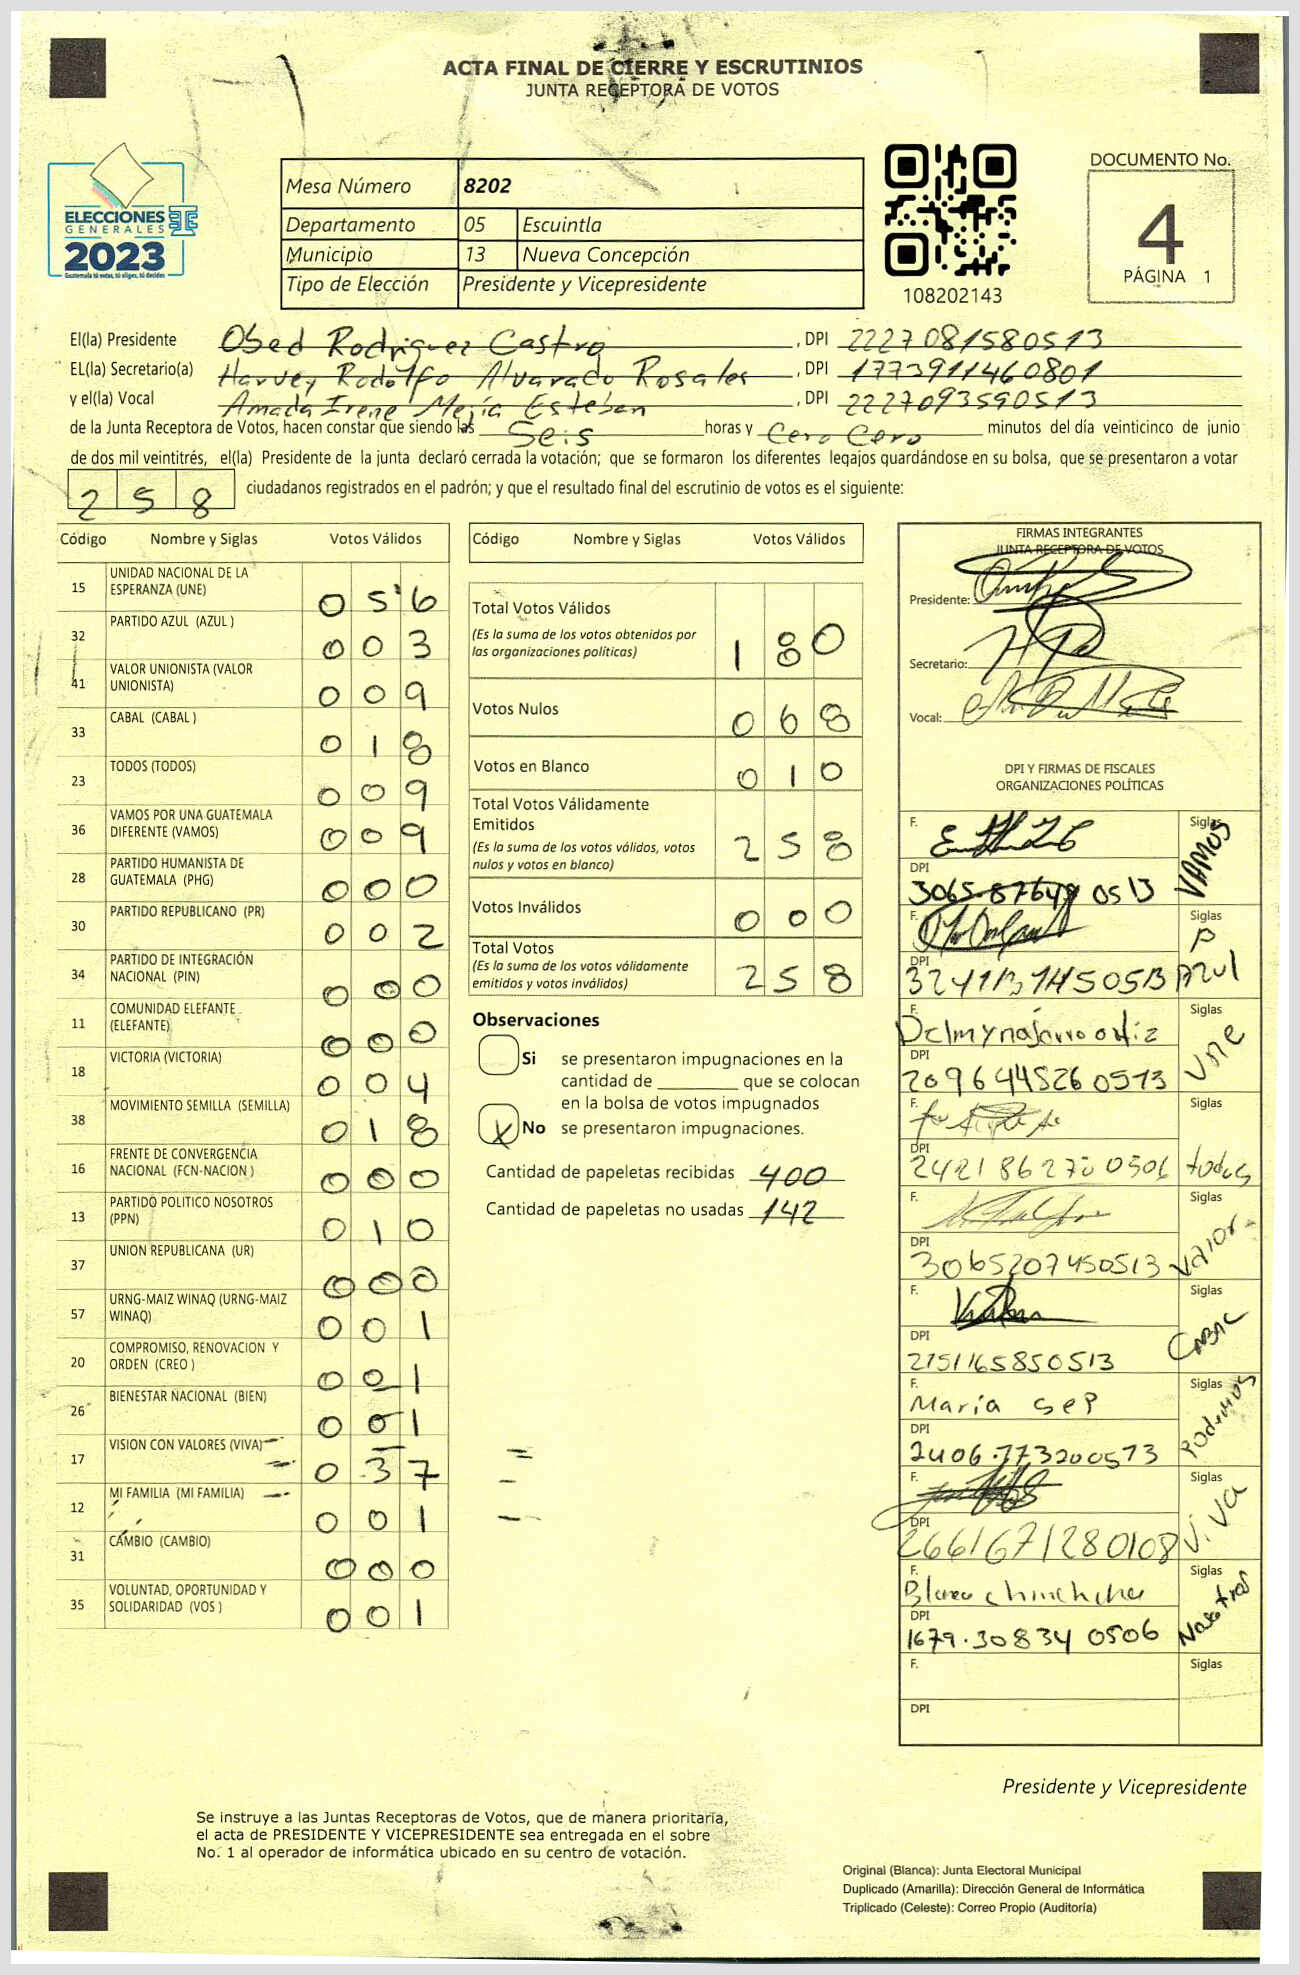 ACTA FINAL DE CIERRE Y ESCRUTINIOS
JUNTA RECEPTORA DE VOTOS
ELECCIONES
GENERALES
2023
Guatemala tú votas, tú eliges, tú decides
Mesa Número 8202
Departamento 05 Escuintla
Municipio 13 Nueva Concepción
Tipo de Elección Presidente y Vicepresidente
108202143
DOCUMENTO No.
4
PÁGINA 1
El(la) Presidente Obed Rodriguez Castro, DPI 2227081580513
EL(la) Secretario(a) Harvey Rodolfo Alvarado Rosales, DPI 1773911460801
y el(la) Vocal Amada Irene Mejía Esteban, DPI 2227093590513
de la Junta Receptora de Votos, hacen constar que siendo las Seis horas y Cero Cero minutos del día veinticinco de junio
de dos mil veintitrés, el(la) Presidente de la junta declaró cerrada la votación; que se formaron los diferentes legajos guardándose en su bolsa, que se presentaron a votar
258 ciudadanos registrados en el padrón; y que el resultado final del escrutinio de votos es el siguiente:
Código Nombre y Siglas Votos Válidos
15 UNIDAD NACIONAL DE LA ESPERANZA (UNE) 056
32 PARTIDO AZUL (AZUL ) 003
41 VALOR UNIONISTA (VALOR UNIONISTA) 009
33 CABAL (CABAL ) 018
23 TODOS (TODOS) 009
36 VAMOS POR UNA GUATEMALA DIFERENTE (VAMOS) 009
28 PARTIDO HUMANISTA DE GUATEMALA (PHG) 000
30 PARTIDO REPUBLICANO (PR) 002
34 PARTIDO DE INTEGRACIÓN NACIONAL (PIN) 000
11 COMUNIDAD ELEFANTE (ELEFANTE) 000
18 VICTORIA (VICTORIA) 004
38 MOVIMIENTO SEMILLA (SEMILLA) 018
16 FRENTE DE CONVERGENCIA NACIONAL (FCN-NACION ) 000
13 PARTIDO POLITICO NOSOTROS (PPN) 010
37 UNION REPUBLICANA (UR) 000
57 URNG-MAIZ WINAQ (URNG-MAIZ WINAQ) 001
20 COMPROMISO, RENOVACION Y ORDEN (CREO ) 001
26 BIENESTAR NACIONAL (BIEN) 001
17 VISION CON VALORES (VIVA) 037
12 MI FAMILIA (MI FAMILIA) 001
31 CAMBIO (CAMBIO) 000
35 VOLUNTAD, OPORTUNIDAD Y SOLIDARIDAD (VOS ) 001
Código Nombre y Siglas Votos Válidos
Total Votos Válidos 180
(Es la suma de los votos obtenidos por
las organizaciones políticas)
Votos Nulos 068
Votos en Blanco 010
Total Votos Válidamente
Emitidos 258
(Es la suma de los votos válidos, votos
nulos y votos en blanco)
Votos Inválidos 000
Total Votos 258
(Es la suma de los votos válidamente
emitidos y votos inválidos)
Observaciones
Si se presentaron impugnaciones en la
cantidad de ________ que se colocan
en la bolsa de votos impugnados
X No se presentaron impugnaciones.
Cantidad de papeletas recibidas 400
Cantidad de papeletas no usadas 142
FIRMAS INTEGRANTES
JUNTA RECEPTORA DE VOTOS
Presidente:
Secretario:
Vocal:
DPI Y FIRMAS DE FISCALES
ORGANIZACIONES POLÍTICAS
F. Siglas VAMOS
DPI
F. Siglas P Azul
DPI
F. Delmy najarro ortiz Siglas UNE
DPI 2096448260513
F. Siglas todos
DPI 2421862720506
F. Siglas Valor
DPI 3065207450513
F. Siglas CABAL
DPI 2151165850513
F. Maria Sep Siglas Podemos
DPI 2406.773200513
F. Siglas ViVA
DPI 2661671280108
F. Blanca Chinchilla Siglas Nosotros
DPI 1679.30834 0506
F. Siglas
DPI
Presidente y Vicepresidente
Se instruye a las Juntas Receptoras de Votos, que de manera prioritaria,
el acta de PRESIDENTE Y VICEPRESIDENTE sea entregada en el sobre
No. 1 al operador de informática ubicado en su centro de votación.
Original (Blanca): Junta Electoral Municipal
Duplicado (Amarilla): Dirección General de Informática
Triplicado (Celeste): Correo Propio (Auditoría)